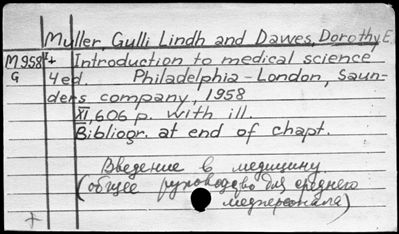 Muller, Gulli Lindh and Dawes, Dorothy E.
M958I+ Introduction to medical science
G 4ed. Philadelphia - London, Saun-
ders company, 1958
XI, 606 p. with ill.
Bibliogr. at end of chapt.
Введение в медицину
(общее руководство для среднего
медперсонала)
+